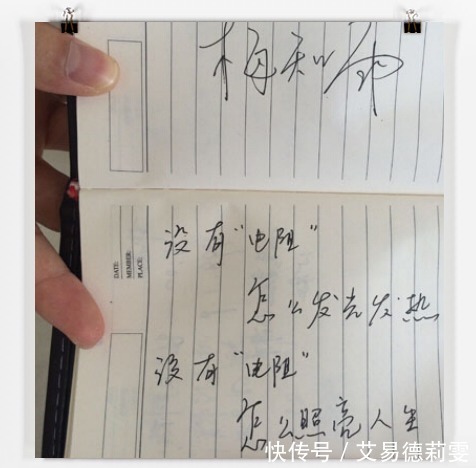 DATE:
MEMBER:
PLACE:
没有"电阻"
怎么发光发热
没有"电阻"
怎么照亮人生
快传号 / 艾易德莉雯